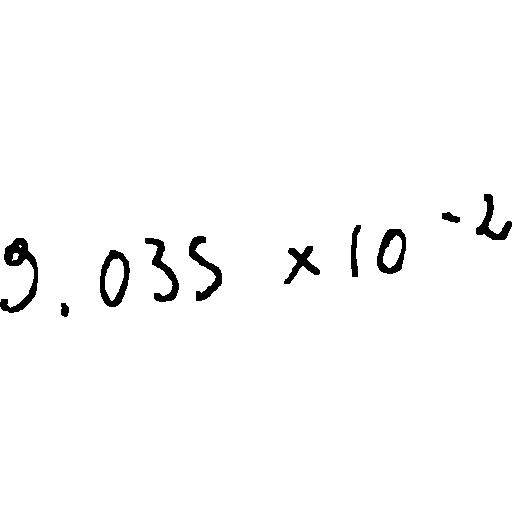 9.035 × 10⁻²